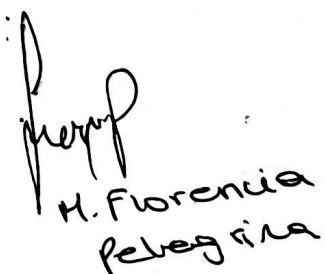 M. Florencia
Pelegrina